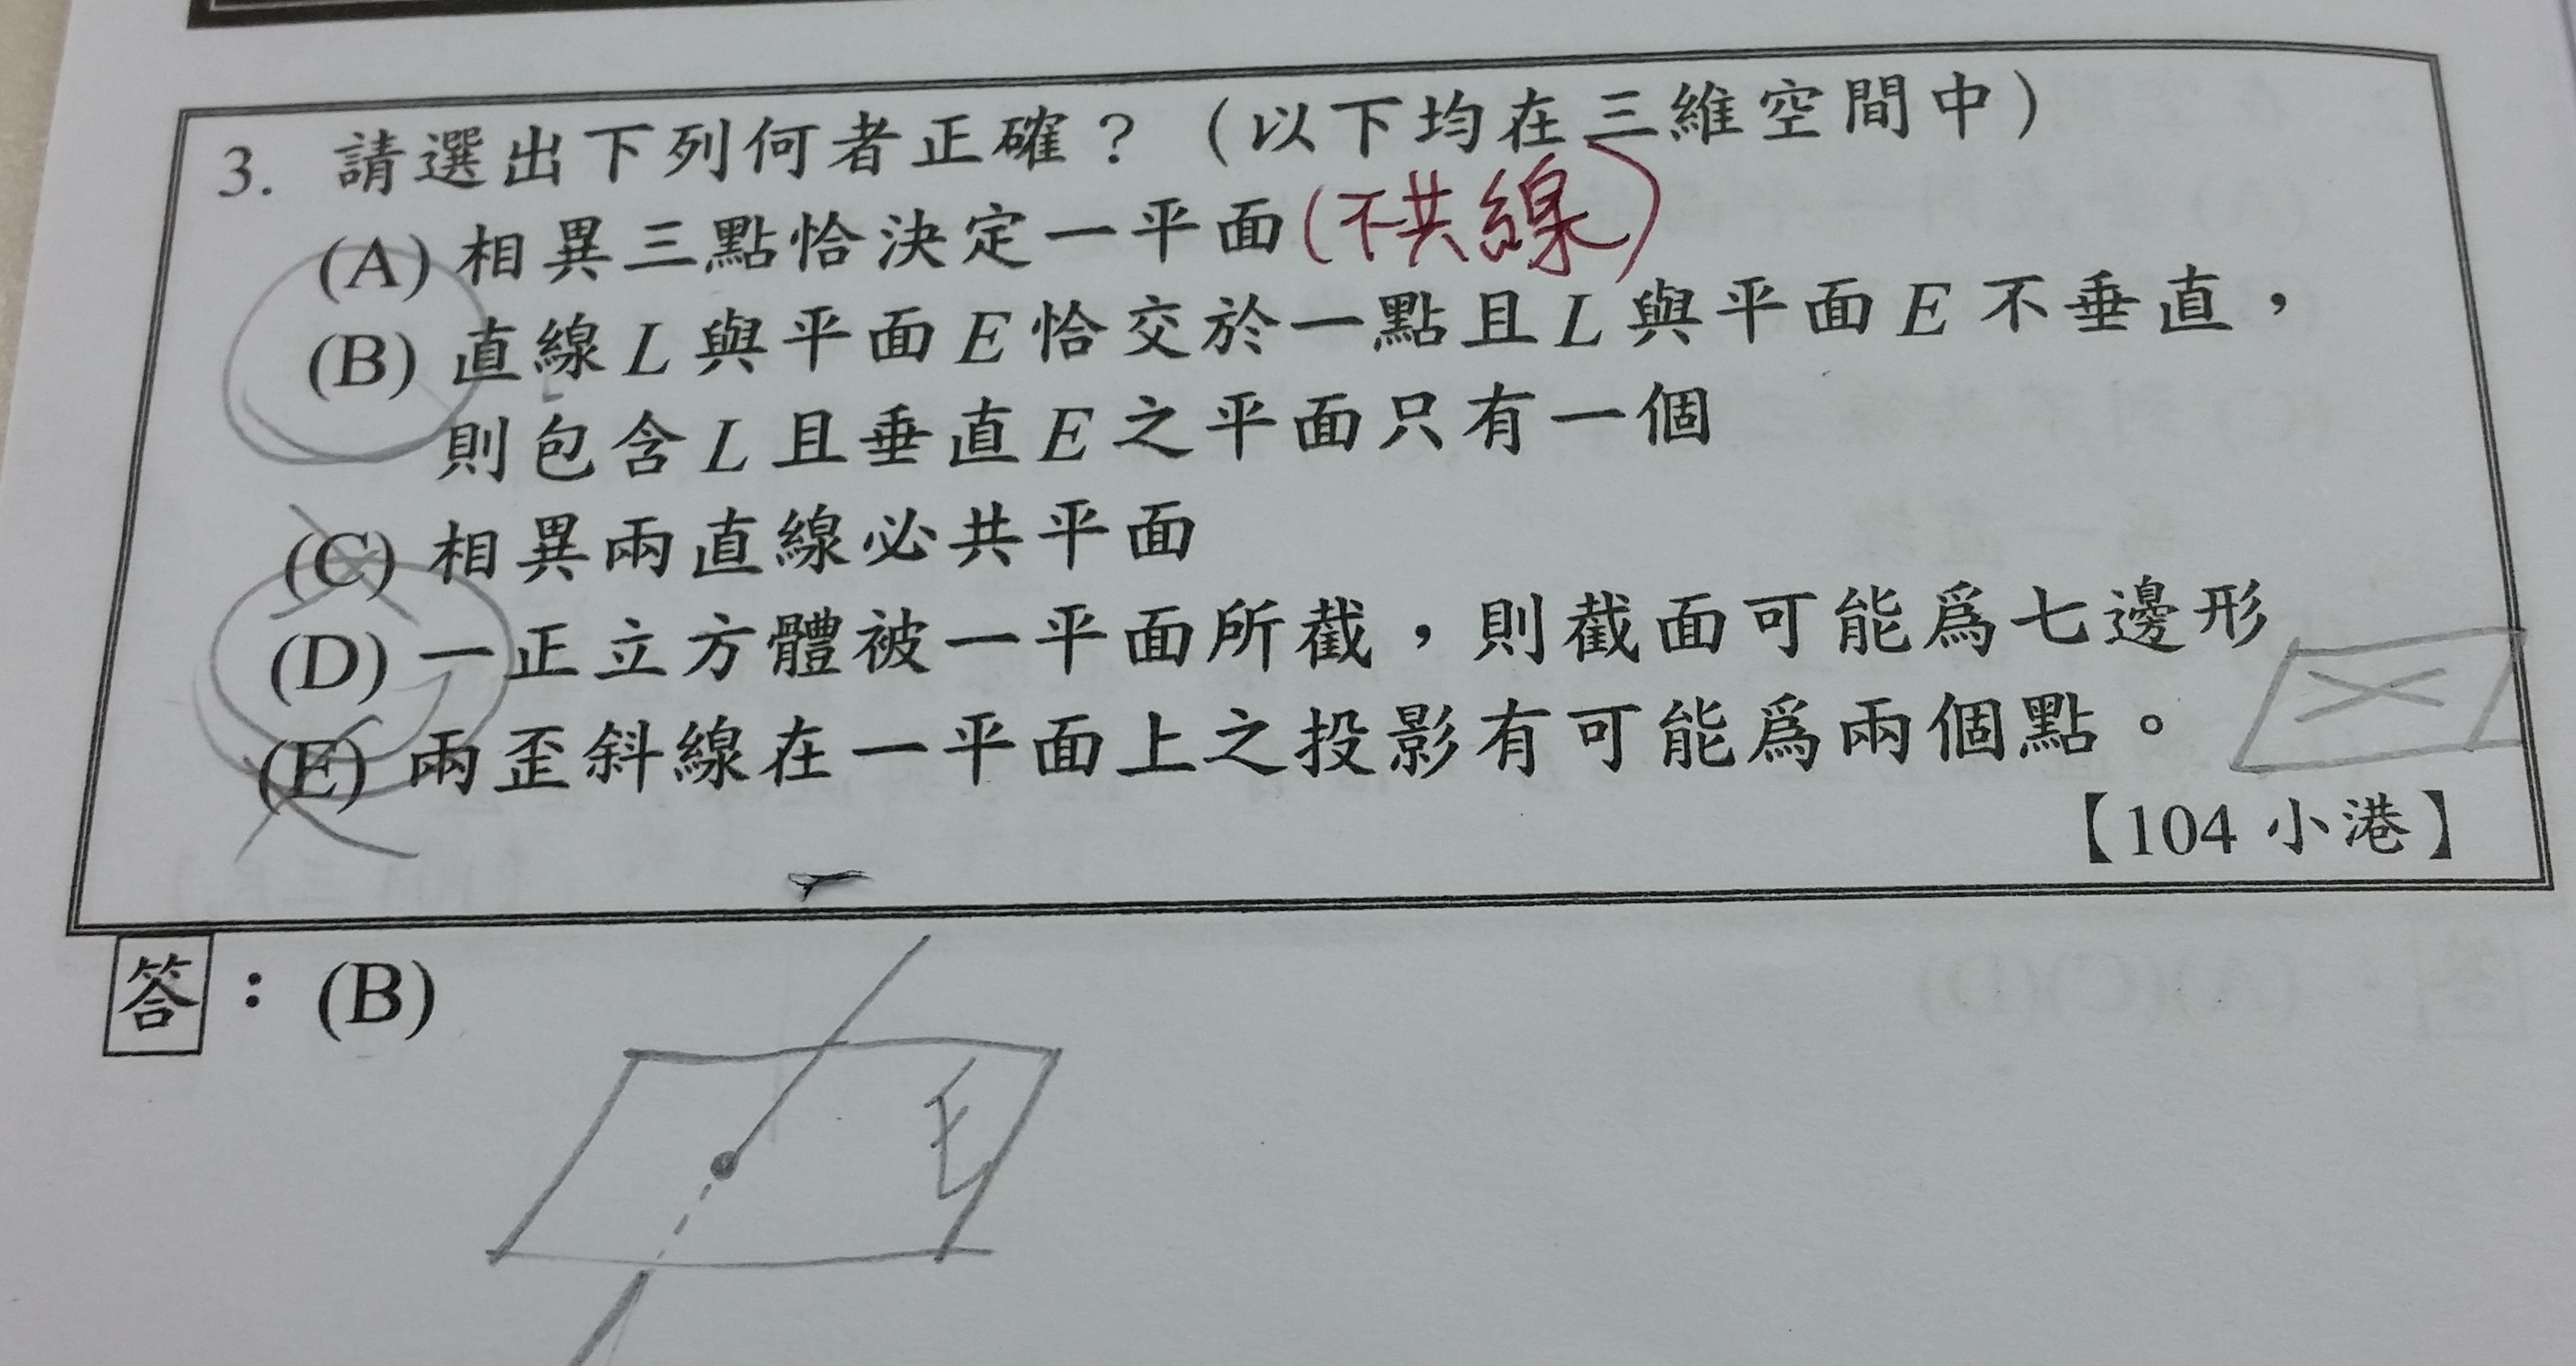 3. 請選出下列何者正確？（以下均在三維空間中）
(A) 相異三點恰決定一平面(不共線)
(B) 直線L與平面E恰交於一點且L與平面E不垂直，
則包含L且垂直E之平面只有一個
(C) 相異兩直線必共平面
(D) 一正立方體被一平面所截，則截面可能爲七邊形
(E) 兩歪斜線在一平面上之投影有可能爲兩個點。
【104 小港】
答：(B)
E